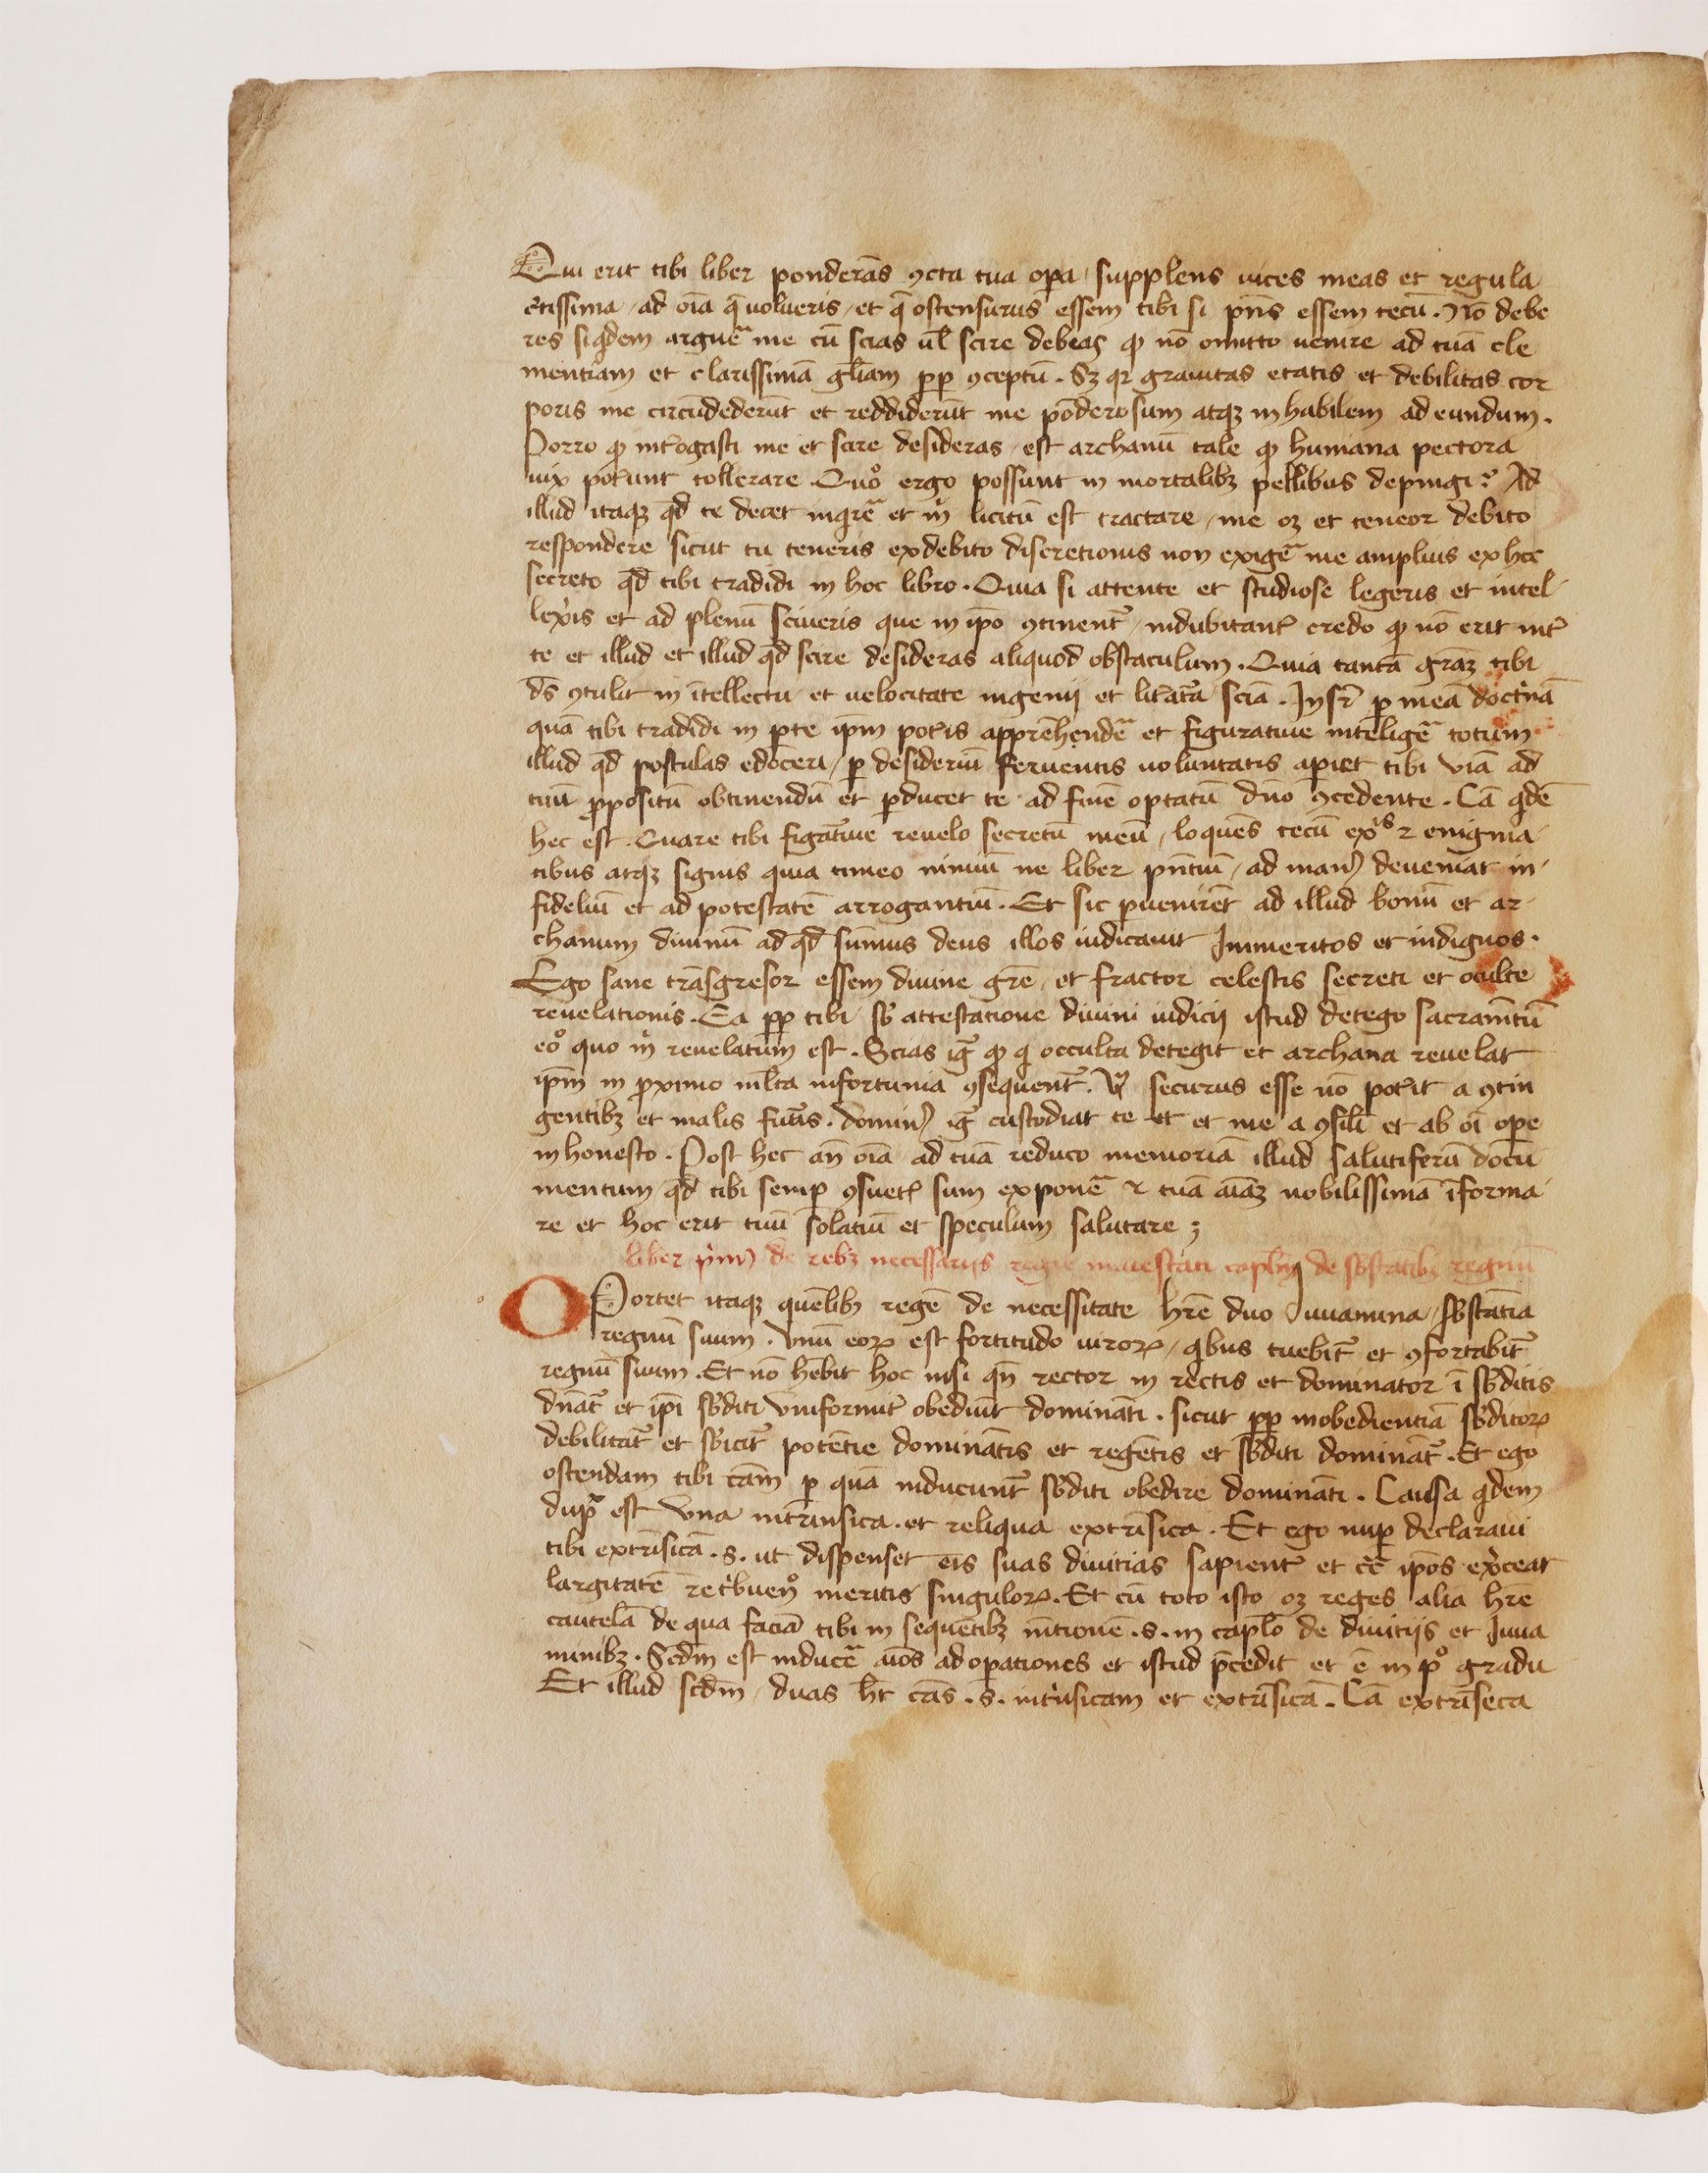 Qui erit tibi liber ponderās ꝯcta tua opa / supplens uices meas et regula
c̄tissima / ad oīa q̄ uolueris / et q̄ ostensurus essem tibi si pn̄s essem tecū . Nō debe
res siqdem arguē me cū scias ul̄ scire debeas ꝙ nō omitto uenire ad tuā cle
mentiam et clarissimā gl̄iam ꝓp ꝯceptū . Sꝫ qr grauitas etatis et debilitas cor
poris me circūdederūt et reddiderūt me pōderosum atqꝫ inhabilem ad eundum .
Porro ꝙ int̄ogasti me et scire desideras / est archanū tale ꝙ humana pectora
uix pot̄unt tollerare . Quo̊ ergo possunt in mortalibꝫ pellibus depingi ? Ad
illud itaqꝫ qd̄ te decet inqrē et m̊ licitū est tractare / me oꝫ et teneor debito
respondere sicut tu teneris ex debito discretionis non exigē me amplius ex hoc
secreto qd̄ tibi tradidi in hoc libro . Quia si attente et studiose legeris et intel-
lex̄is et ad plenū sciueris que in ip̄o ꝯtinent̄ / indubitant̄ credo ꝙ nō erit int̄
te et illud et illud qd̄ scire desideras aliquod obstaculum . Quia tantā gr̄aꝫ tibi
ds̄ ꝯtulit in ītellectu et uelocitate ingenij et lit̄at̄a sciā . Insr̄ ꝑ meā doctīnā
quā tibi tradidi in ꝑte ip̄m pot̄is apprēhendē et figuratiue intēligē totum
illud qd̄ postulas edoceri / ꝑ desideriū feruentis uoluntatis apiet tibi viā ad
tuū ꝓpositū obtinendū et ꝑducet te ad finē optatū dn̄o ꝯcedente . Cā qdē
hec est . Quare tibi figat̄iue reuelo secretū meū / loquēs tecū exis ⁊ enigma-
tibus atqꝫ signis quia timeo nimiū ne liber pn̄tiū / ad manꝰ deueniat in-
fideliū et ad potestatē arrogantiū . Et sic ꝑuenirēt ad illud bonū et ar-
chanum diuinū ad qd̄ sūmus deus illos iudicauit Immeritos et indignos .
Ego sane trāsgresor essem diuine gr̄e / et fractor celestis secreti et oculte
reuelationis . Ea ꝓp tibi sb̄ attestatione diuini iudicij istud detego sacramītū
eo̊ quo m̊ reuelatum est . Scias ig̊ ꝙ q̄ occulta detegit et archana reuelat
ip̄m in ꝓximo ml̄ta infortunia ꝯsequent̄ . securus esse nō pot̄it a ꝯtin
gentibꝫ et malis fut̄is . dominꝰ ig̊ custodiat te et et me a ꝯsil̄i et ab oī ope
inhonesto . Post hec an̄ oīa ad tuā reduco memoriā illud salutiferū docū
mentum qd̄ tibi semꝑ ꝯsuetꝰ sum exponē ⁊ tuā aīaꝫ nobilissimā īforma
re et hoc erit tuū solatiū et speculum salutare ;
liber p̊mꝰ de rebꝫ necessarijs regie maiestati caplm̄ de sb̄statibꝫ regnū
OPortet itaqꝫ quēlibꝫ regē de necessitate hr̄e duo Iuuamina / sb̄stātia
regnū suum . Vnū eoꝝ est fortitudo uiroꝝ / qbus tuebit̄ et ꝯfortabit̄
regnū suum . Et nō hēbit hoc nisi qn̄ rector in rectis et dominator ī sb̄ditis
dn̄at̄ et ip̄i sb̄diti vniformit̄ obediūt dominātī . sicut ꝓp inobedientiā sb̄ditoꝝ
debilitat̄ et sb̄icit̄ potētie dominātis et regētis et sb̄diti domināt̄ . Et ego
ostendam tibi cām ꝑ quā inducunt̄ sb̄diti obedire dominātī . Causa qdem
dup̄ est vna intrinsica . et reliqua extrīsica . Et ego nuꝑ declaraui
tibi extrīsicā . s . ut dispenset eis suas diuitias sapient̄ et c̄c̄ ip̄os ex̄ceat
largitatē ret̊buen̊ meritis singuloꝝ . Et cū toto isto oꝫ reges alia hr̄e
cautelā de qua faciā tibi in sequētibꝫ m̄tionē . s . in caplō de diuitijs et Iuua
minibꝫ . Scd̄m est inducē aīos ad opationes et istud p̄cedit et ē in p̊ gradu
Et illud scd̄m / duas hꝫ cās . s . int̊usicam et extrīsicā . Cā extrīseca